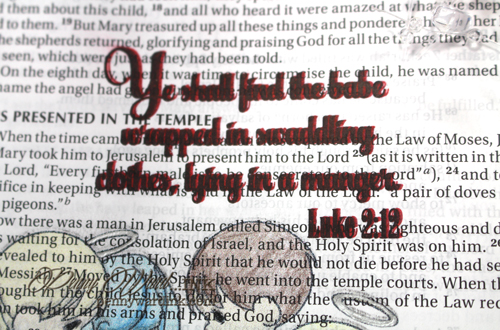 them about this child, 18 and all who heard it were amazed at what the shep
d to them. 19 But Mary treasured up all these things and pondere her
he shepherds returned, glorifying and praising God for all the things they had
seen, which were just as they had been told.
On the eighth day, when it was time to circumcise the child, he was named
name the angel had
Ye shall find the babe
wrapped in swaddling
clothes, lying in a manger.
Luke 2:12
S PRESENTED IN THE TEMPLE
When the time cam the Law of Moses, J
Mary took him to Jerusalem to present him to the Lord 23 (as it is written in th
Lord, "Every fi to be consecrated to the Lord" a), 24 and to
ifice in keeping the Law a pair of doves
pigeons." b
ow there was a man in Jerusalem called Simeo righteous and d
s waiting he consolation of Israel, and the Holy Spirit was on him. 2
evealed to him by the Holy Spirit that he would not die before he had se
Messia Moved by the Spirit, he went into the temple courts. When th
ought in the child Jesus to do for him what the custom of the Law req
n took him in his arms and praised God, saying: